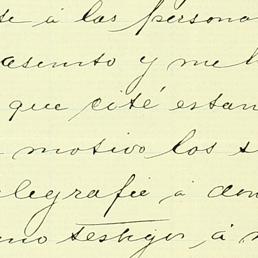 te á las persona
asunto y me h
que cité estan
motivo los s
legrafié, á don
mo testigos, á n